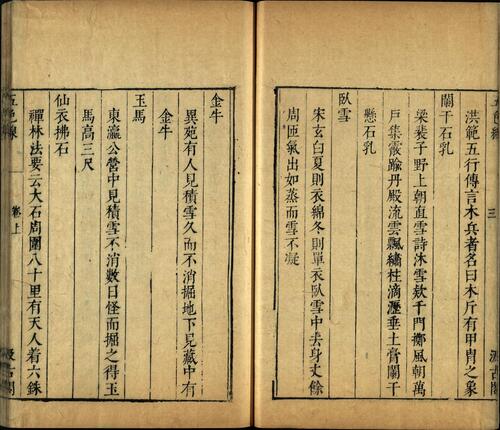 三
洪範五行傳言木兵者名曰木斤有甲胄之象
闌干石乳
梁裴子野上朝直雪詩沐雪款千門擲風朝萬
戶集霰踰丹殿流雲飄繡柱滴瀝垂土膏闌干
懸石乳
臥雪
宋玄白夏則衣綿冬則單衣臥雪中去身丈餘
周匝氣出如蒸而雪不凝
金牛
異苑有人見積雪久而不消掘地下見藏中有
金牛
玉馬
東瀛公營中見積雪不消數日怪而掘之得玉
馬高三尺
仙衣拂石
禪林法要云大石周圍八十里有天人着六銖
五色線 卷上 汲古閣